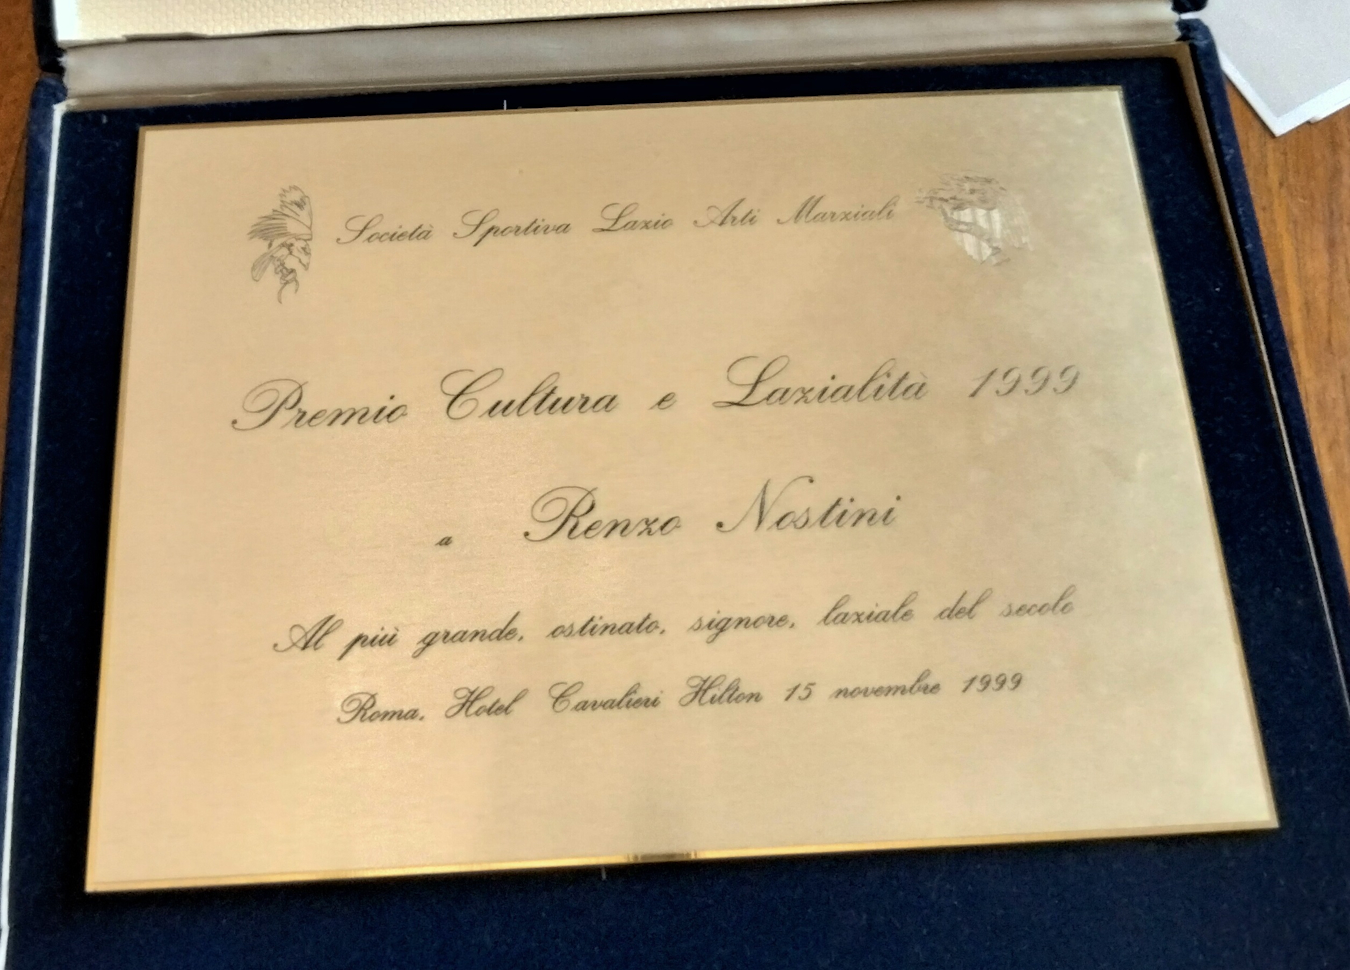 Società Sportiva Lazio Arti Marziali
Premio Cultura e Lazialità 1999
a Renzo Nostini
Al più grande, ostinato, signore, laziale del secolo
Roma, Hotel Cavalieri Hilton 15 novembre 1999